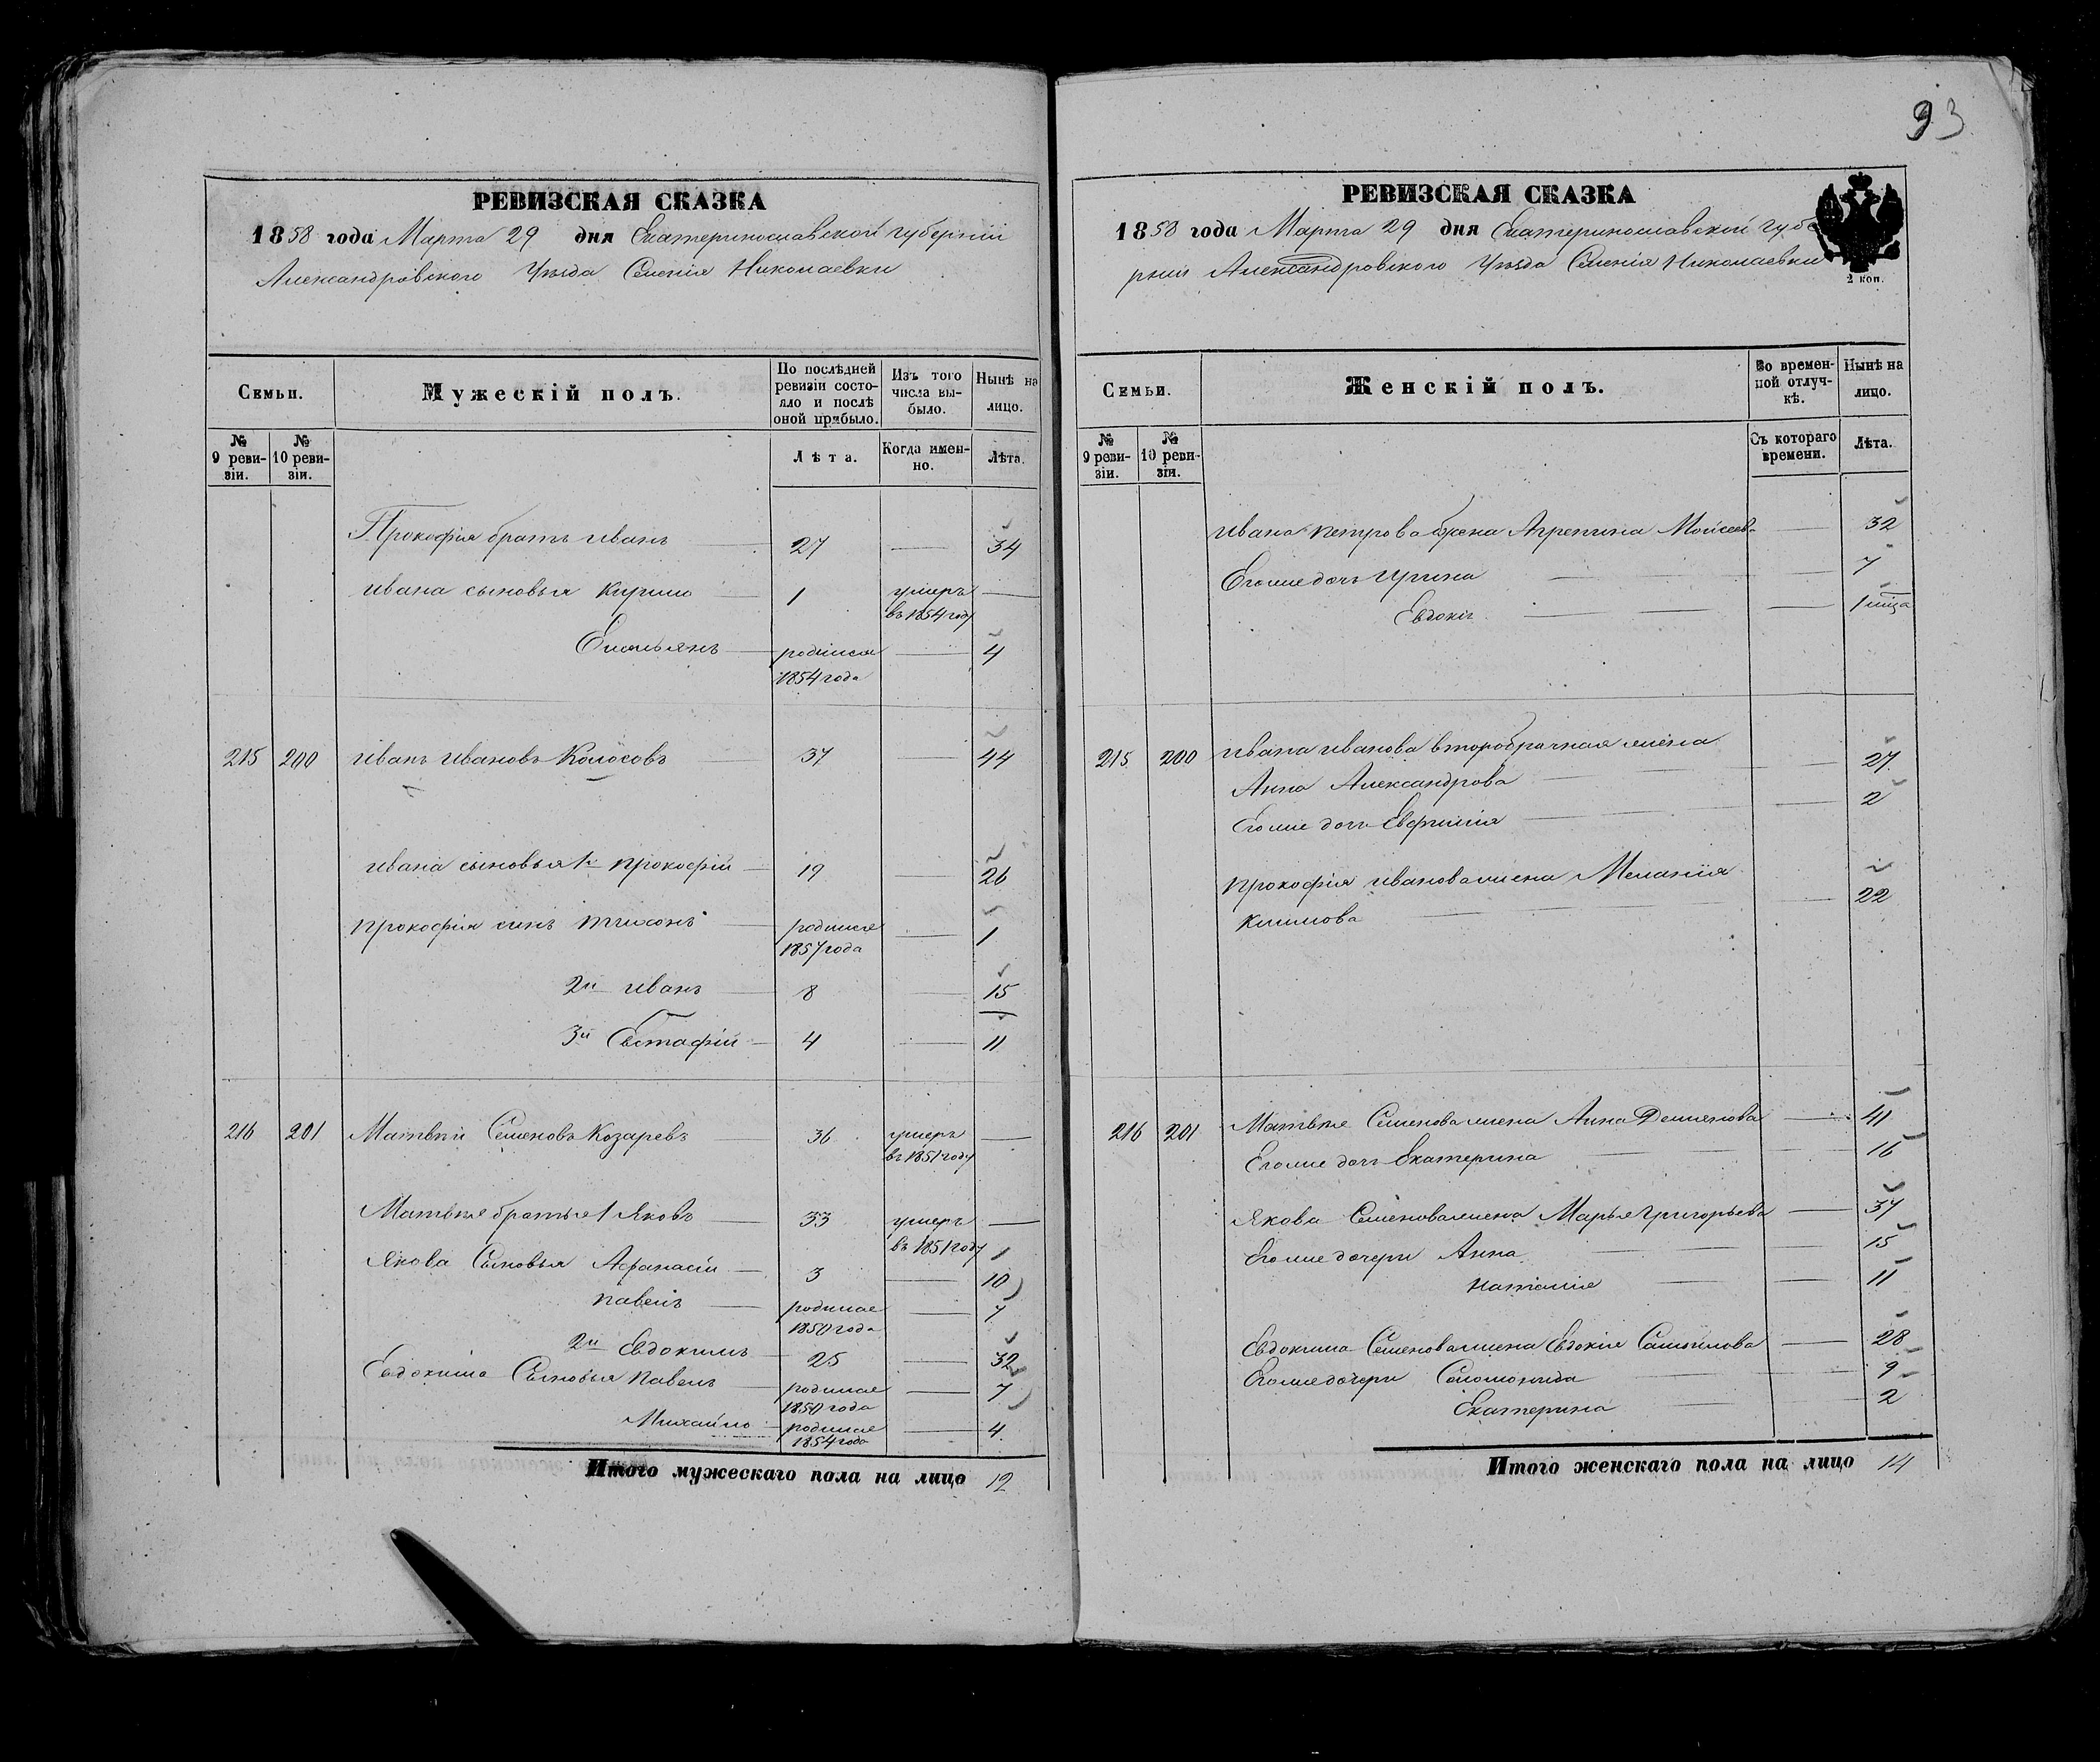 93
РЕВИЗСКАЯ СКАЗКА
1858 года Марта 29 дня Екатеринославской губерніи
Александровского Уѣзда Селенія Николаевки
Семьи.
Мужескій полъ.
По послѣдней ревизіи состояло и послѣ оной прибыло.
Изъ того числа выбыло.
Нынѣ на лицо.
№ 9 ревизіи.
№ 10 ревизіи.
Лѣта.
Когда именно.
Лѣта.
Прокофія братъ Иванъ 27 — 34
Ивана сыновья Кирило 1 умеръ в 1854 году —
Емельянъ родился 1854 года — 4
215 200 Иванъ Ивановъ Колосовъ 37 — 44
Ивана сыновья 1й Прокофій 19 — 26
Прокофія сынъ Тихонъ родился 1857 года — 1
2й Иванъ 8 — 15
3й Евстафій 4 — 11
216 201 Матвѣй Семеновъ Козаревъ 36 умеръ въ 1851 году —
Матвѣя братья 1 Яковъ 33 умеръ въ 1851 году —
Якова Сыновья Афанасій 3 — 10
Павелъ родился 1850 года — 7
2й Евдокимъ 25 — 32
Евдокима Сыновья Павелъ родился 1850 года — 7
Михайло родился 1854 года — 4
Итого мужескаго пола на лицо 12
РЕВИЗСКАЯ СКАЗКА
1858 года Марта 29 дня Екатеринославской губе
рніи Александровского Уѣзда Селенія Николаевки
2 коп.
Семьи.
Женскій полъ.
Во временной отлучкѣ.
Нынѣ на лицо.
№ 9 ревизіи.
№ 10 ревизіи.
Съ котораго времени.
Лѣта.
Ивана Петрова жена Агрепина Моисеева — 32
Его же дочь Ирина — 7
Евдокія — 1 мца
215 200 Ивана Иванова второбрачная жена
Анна Александрова — 27
Его же дочь Евфимія — 2
Прокофія Иванова жена Меланія
Климова — 22
216 201 Матвѣя Семенова жена Анна Демянова — 41
Его же дочь Екатерина — 16
Якова Семенова жена Марья Григорьева — 37
Его же дочери Анна — 15
Наталія — 11
Евдокима Семенова жена Евдокія Самойлова — 28
Его же дочери Соломонида — 9
Екатерина — 2
Итого женскаго пола на лицо 14